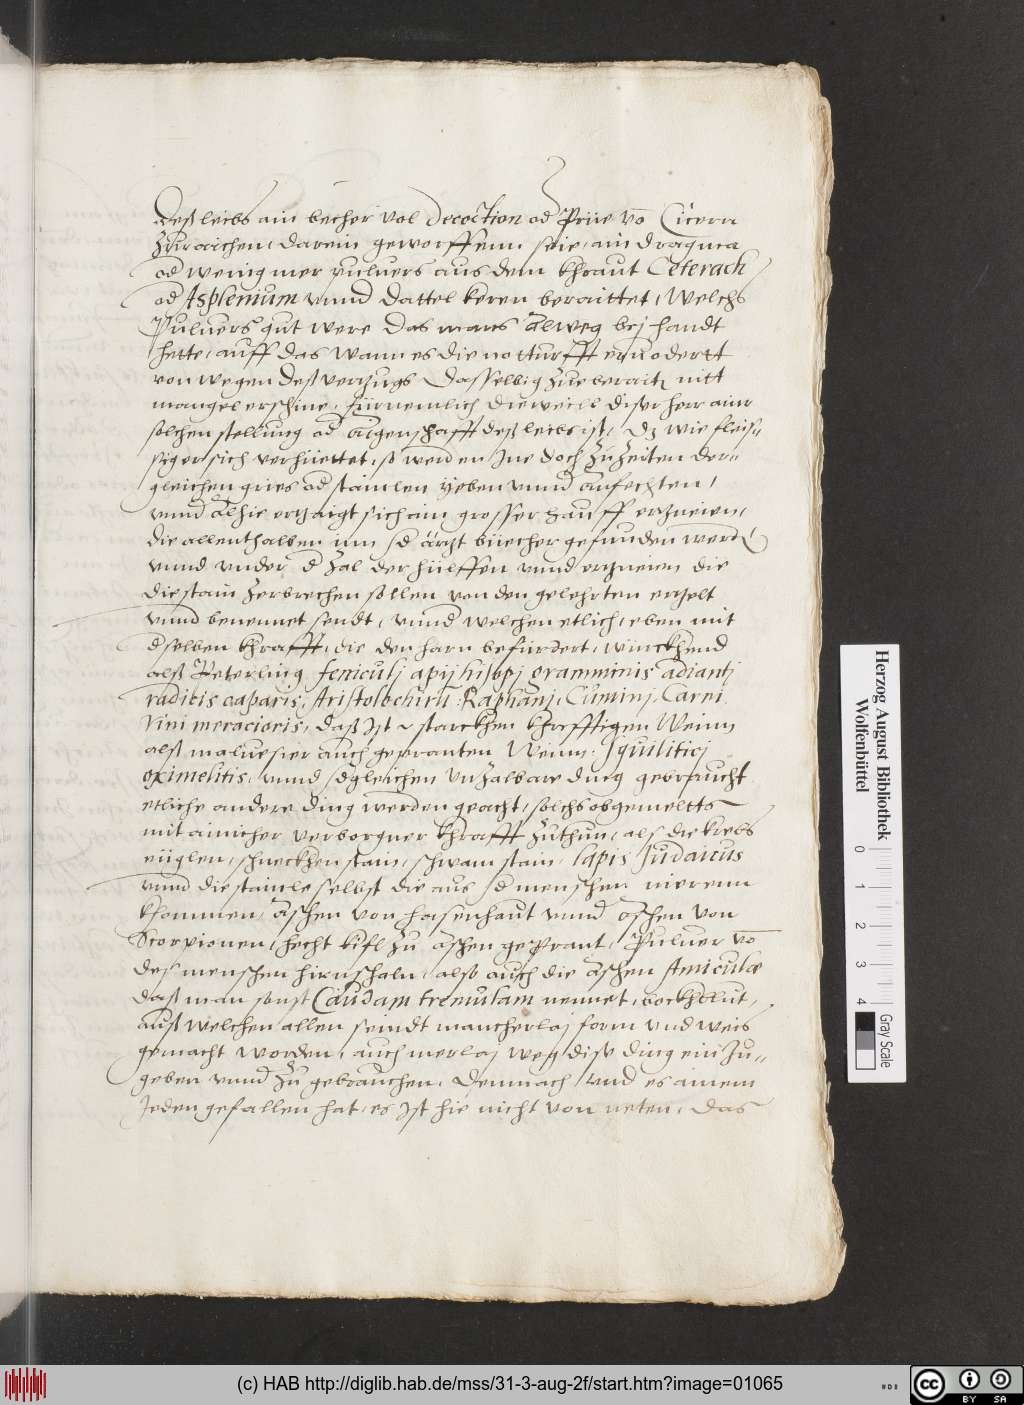 Deß leibs ain becher vol Decoction od Prüe vō Cicern
Zuraichen, darein geworffenn seie, ain dragma
od wenig mer puluers aus dem khraut Ceterach
od Asplenium vnnd dattel keren beraittet, Welchs
Puluers gut were das mans alweg bej handt
hette, auff das wann es die notturfft erfodertt
von wegen deß verzugs dasselbig Zuberaitē nitt
mangel erschine, fürnemlich dieweill diser herr ainr
solchen stellung od aigenschafft deß leibs ist, Dz wie fleis-
siger sich verhüettet, so werden Ine doch Zu Zeiten der-
gleichen gries od stainlen yeben vnnd anfechten,
vnnd alhie erzaigt sich ain grosser hauff erzneien,
die allenthalben inn d ärzt büecher gefunden werdē
vnnd vnder d Zal der hülffen vnnd erzneien die
die stain Zerbrechen sollen von den gelehrten erzelt
vnnd benennet sendt, vnnd welchen etlich, eben mit
dselben khrafft, die den harn befürdert, würckhend
alß Peterling feniculj apij hisopj gramminis adiantj
raditis caparis, Aristolochiru, Raphanj, Cuminj, Carui
Vini meracioris, daß Ist starckhen khrefftigen Weinn
alß maluesier auch gepranten Weinn. Squiliticj
oximelitis, vnnd dgleichen vnzalbare ding gebraucht
etliche andere ding werden geacht, solchs obgemelts
mit ainicher verborgner khrafft Zuthun, als die krebs
eüglen, schneckhen stain, schwam stain, lapis Judaicus
vnnd die stainle selbst die aus d menschen nierenn
khommen, aschen von hasenhaut vnnd aschen von
Scorpionen, hecht kifl Zu aschen geprant, Puluer vō
des menschen hirnschaln, also auch die aschen Amiculæ
daß man sonst Caudam tremulam nennet, bockhblut,
auß welchen allen seindt mancherlaj form vnd weis
gemacht worden, auch merlaj weg dise ding ein Zu-
geben vnnd Zu gebrauchen. Demnach vnd es ainem
Jeden gefallen hat, es Ist hie nicht von neten, das
Herzog August Bibliothek
Wolfenbüttel
0 1 2 3 4
Gray Scale
(c) HAB http://diglib.hab.de/mss/31-3-aug-2f/start.htm?image=01065
cc BY SA